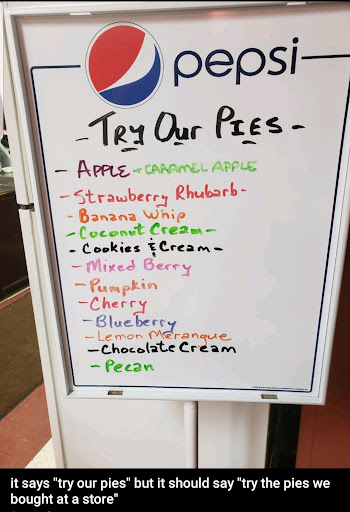 pepsi
- TRY OUR PIES -
- APPLE + CARAMEL APPLE
- Strawberry Rhubarb -
- Banana Whip
- Coconut Cream -
- Cookies & Cream -
- Mixed Berry
- Pumpkin
- Cherry
- Blueberry
- Lemon Meranque
- Chocolate Cream
- Pecan
it says "try our pies" but it should say "try the pies we
bought at a store"